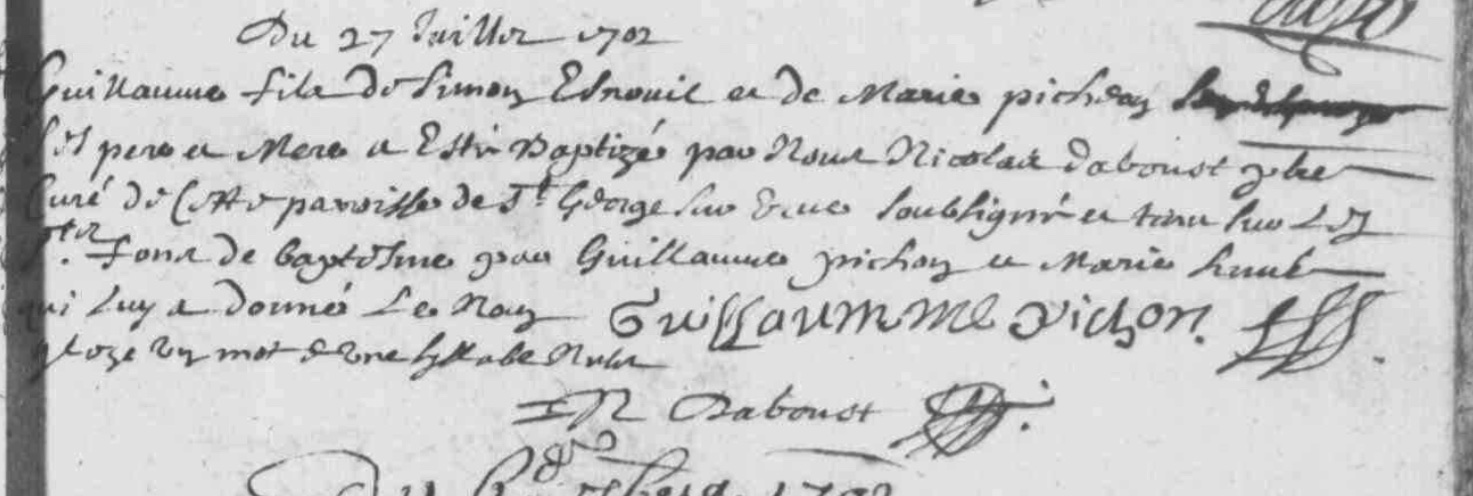 Du 27 Juillet 1702
Guillaume fils de Simon Esnouil et de Marie pichon
ses pere et Mere a Esté Baptizé par Nous Nicolas Daboust pbre
Curé de Cette paroisse de St George sur Erve soubsigné et tenu sur les
sts fons de baptesme par Guillaume pichon et Marie
qui luy a donné Le Nom Guillaumme Pichon.
gloze un mot & une syllabe Nuls
N Daboust
Du 1702